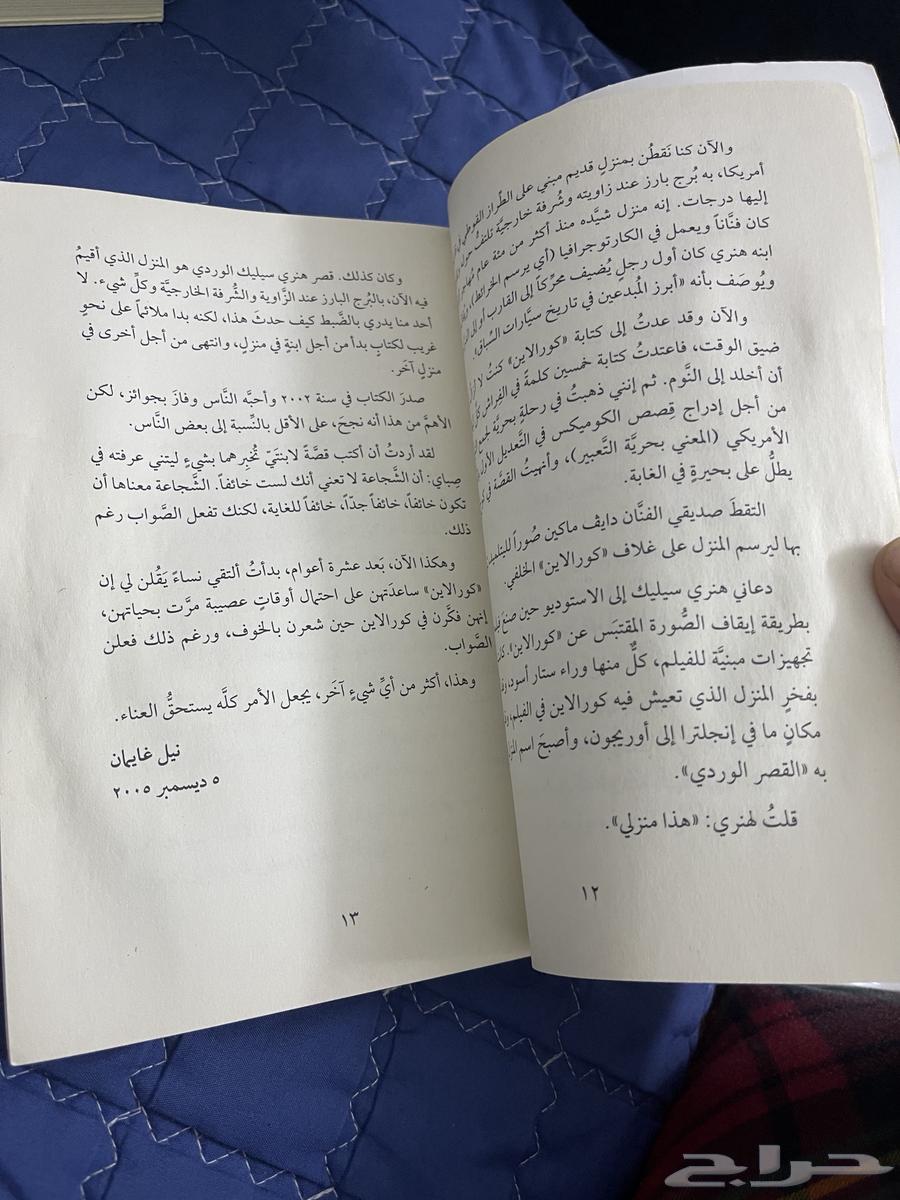 والآن كنا نَقطُن بمنزلٍ قديم مبني على الطِّراز القوطي في
أمريكا، به بُرج بارز عند زاويته وشُرفة خارجيَّة تلتفُّ حول
إليها درجات. إنه منزل شيَّده منذ أكثر من مئة عام
كان فنَّاناً ويعمل في الكارتوجرافيا (أي يرسم الخرائط)،
ابنه هنري كان أول رجلٍ يُضيف محرِّكاً إلى القارب أو إلى
ويُوصَف بأنه «أبرز المُبدعين في تاريخ سيَّارات السِّباق».
والآن وقد عدتُ إلى كتابة «كورالاين» كنتُ لا
ضيق الوقت، فاعتدتُ كتابة خمسين كلمةً في الفِراش
أن أخلد إلى النَّوم. ثم إنني ذهبتُ في رحلةٍ بحريَّة
من أجل إدراج قِصص الكوميكس في التَّعديل الأول
الأمريكي (المعني بحريَّة التَّعبير)، وأنهيتُ القصَّة في
يطلُّ على بحيرةٍ في الغابة.
التقطَ صديقي الفنَّان دايڤ ماكين صُوراً للبيت
بها ليرسم المنزل على غلاف «كورالاين» الخلفي.
دعاني هنري سيليك إلى الاستوديو حين صنعَ
بطريقة إيقاف الصُّورة المقتبَس عن «كورالاين».
تجهيزات مبنيَّة للفيلم، كلٌّ منها وراء ستار أسود،
بفخرٍ المنزل الذي تعيش فيه كورالاين في الفيلم،
مكانٍ ما في إنجلترا إلى أوريجون، وأصبحَ اسم
به «القصر الوردي».
قلتُ لهنري: «هذا منزلي».
١٢
وكان كذلك. قصر هنري سيليك الوردي هو المنزل الذي أقيمُ
فيه الآن، بالبُرج البارز عند الزَّاوية والشُّرفة الخارجيَّة وكلِّ شيء. لا
أحد منا يدري بالضَّبط كيف حدثَ هذا، لكنه بدا ملائماً على نحوٍ
غريب لكتابٍ بدأ من أجل ابنةٍ في منزلٍ، وانتهى من أجل أخرى في
منزلٍ آخَر.
صدرَ الكتاب في سنة ٢٠٠٢ وأحبَّه النَّاس وفازَ بجوائز، لكن
الأهمَّ من هذا أنه نجحَ، على الأقل بالنِّسبة إلى بعض النَّاس.
لقد أردتُ أن أكتب قصَّةً لابنتَيَّ تُخبِرهما بشيءٍ ليتني عرفته في
صِباي: أن الشَّجاعة لا تعني أنك لست خائفاً. الشَّجاعة معناها أن
تكون خائفاً، خائفاً جدّاً، خائفاً للغاية، لكنك تفعل الصَّواب رغم
ذلك.
وهكذا الآن، بَعد عشرة أعوام، بدأتُ ألتقي نساءً يَقُلن لي إن
«كورالاين» ساعدَتهن على احتمال أوقاتٍ عصيبة مرَّت بحياتهن،
إنهن فكَّرن في كورالاين حين شعرن بالخوف، ورغم ذلك فعلن
الصَّواب.
وهذا، أكثر من أيِّ شيءٍ آخَر، يجعل الأمر كلَّه يستحقُّ العناء.
نيل غايمان
٥ ديسمبر ٢٠٠٥
١٣
حراج